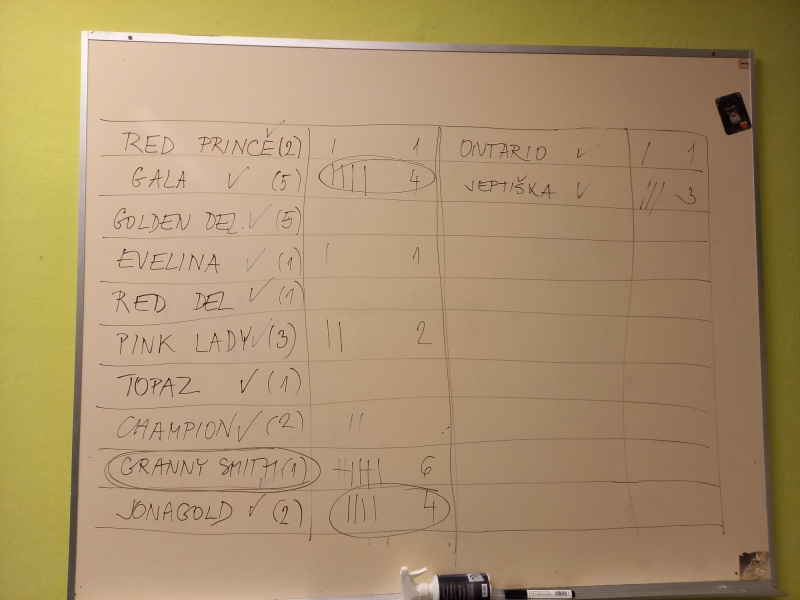 RED PRINCE ✓ (2) | 1 ONTARIO ✓ | 1
GALA ✓ (5) |||| 4 JEPTIŠKA ✓ ||| 3
GOLDEN DEL. ✓ (5)
EVELINA ✓ (1) | 1
RED DEL ✓ (1)
PINK LADY ✓ (3) || 2
TOPAZ ✓ (1)
CHAMPION ✓ (2) ||
GRANNY SMITH (1) 6
JONAGOLD ✓ (2) |||| 4